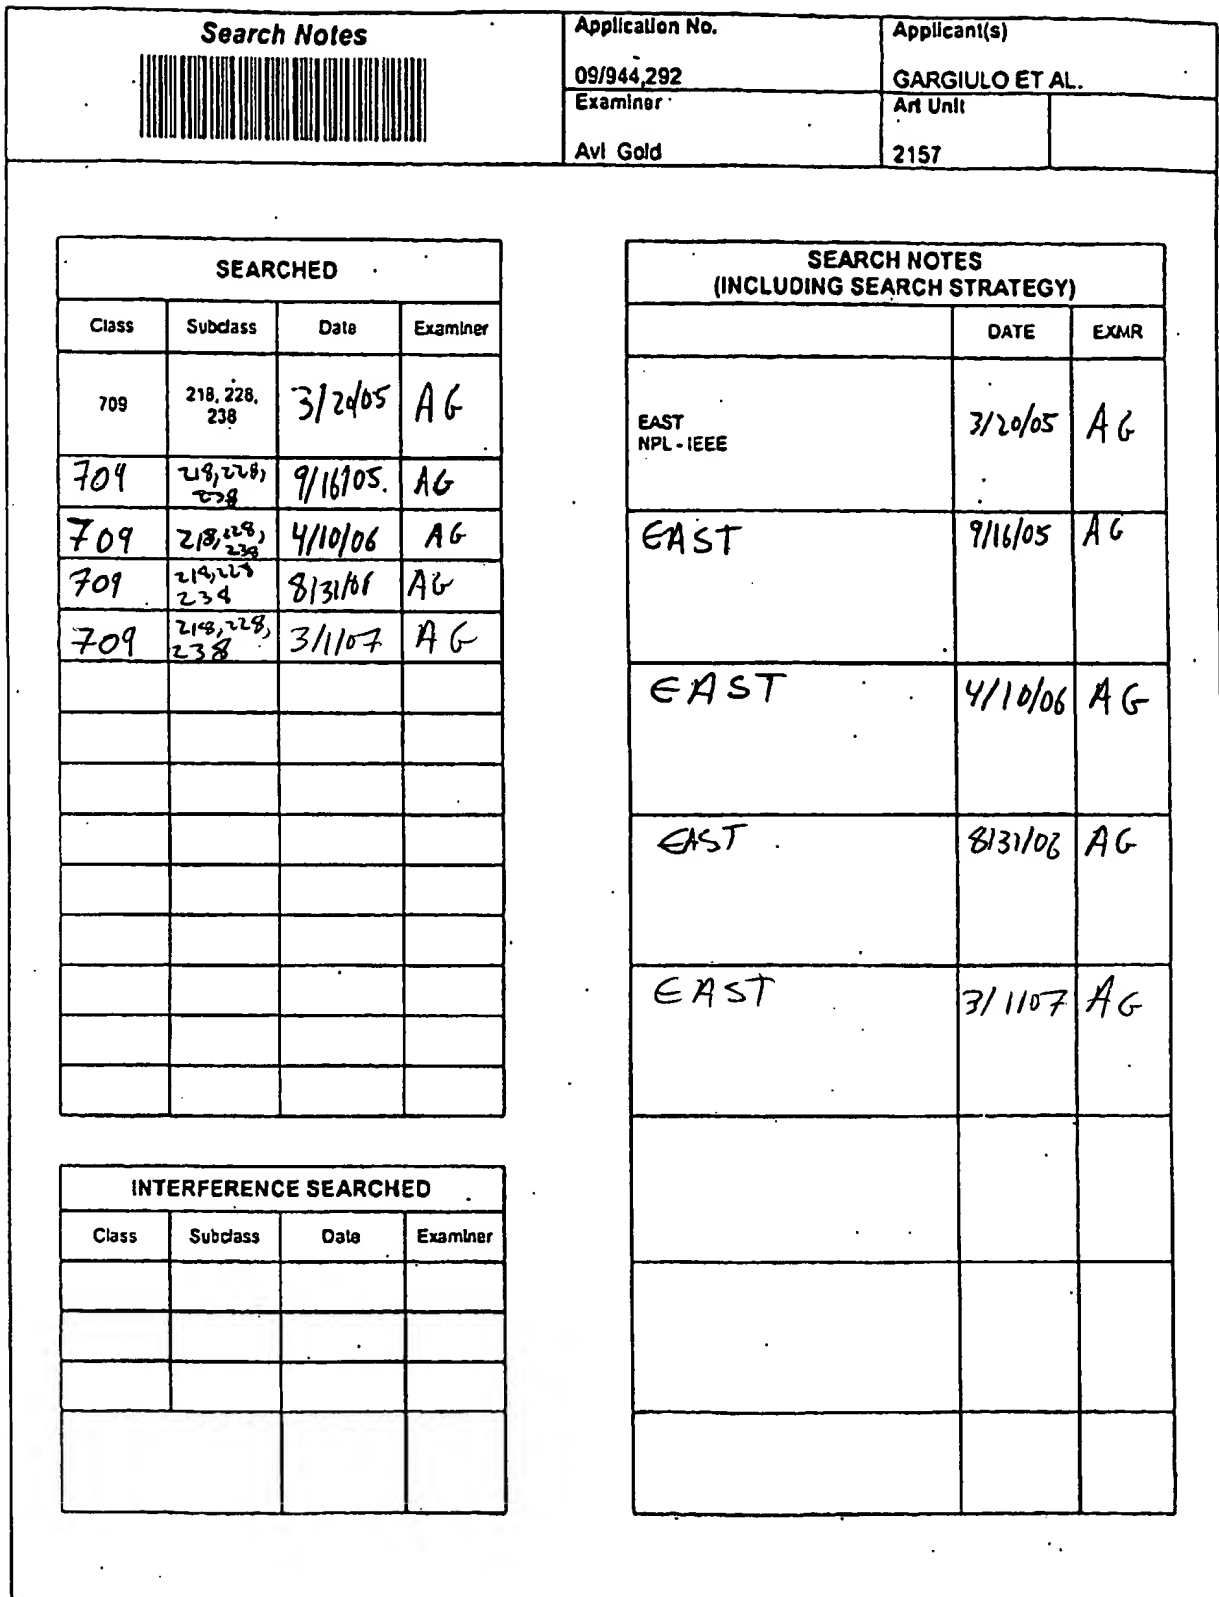 Search Notes
Application No.
09/944,292
Applicant(s)
GARGIULO ET AL.
Examiner
Avi Gold
Art Unit
2157
SEARCHED
Class Subclass Date Examiner
709 218, 228, 238 3/20/05 AG
709 218, 228, 238 9/16/05 AG
709 218, 228, 238 4/10/06 AG
709 218, 228 238 8/31/06 AG
709 218, 228, 238 3/1/07 AG
INTERFERENCE SEARCHED
Class Subclass Date Examiner
SEARCH NOTES
(INCLUDING SEARCH STRATEGY)
DATE EXMR
EAST
NPL - IEEE 3/20/05 AG
EAST 9/16/05 AG
EAST 4/10/06 AG
EAST 8/31/06 AG
EAST 3/1/07 AG